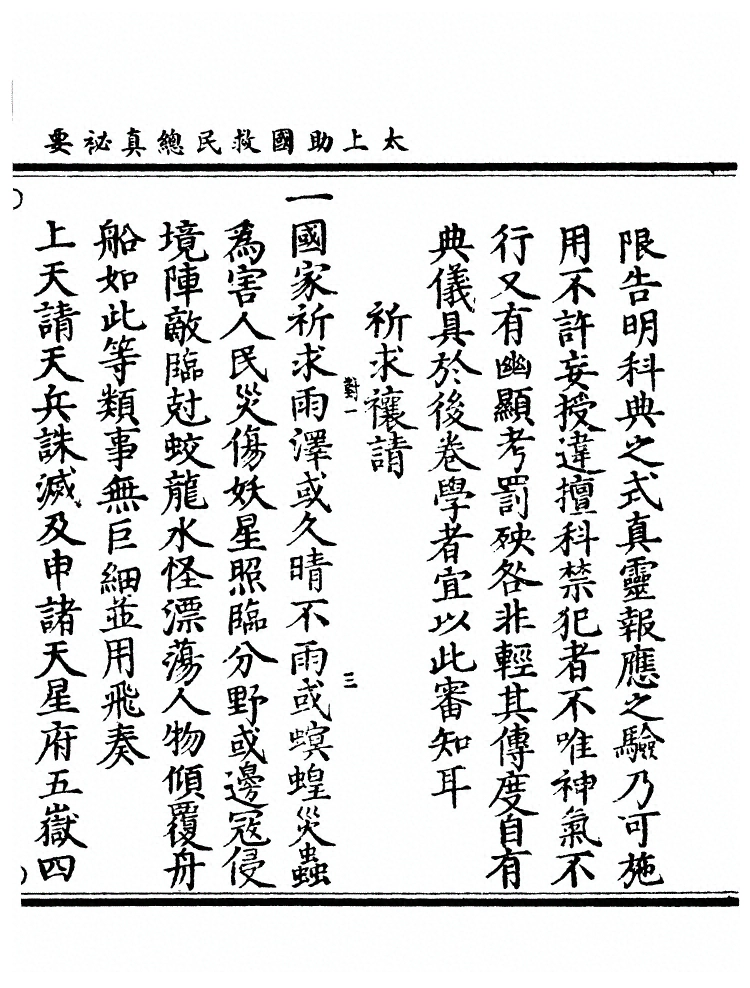 太上助國救民總真祕要
限告明科典之式真靈報應之驗乃可施
用不許妄授違擅科禁犯者不唯神氣不
行又有幽顯考罰殃咎非輕其傳度自有
典儀具於後卷學者宜以此審知耳
祈求禳請
對一
三
一國家祈求雨澤或久晴不雨或螟蝗災蟲
為害人民災傷妖星照臨分野或邊冦侵
境陣敵臨尅蛟龍水怪漂蕩人物傾覆舟
船如此等類事無巨細並用飛奏
上天請天兵誅滅及申諸天星府五嶽四